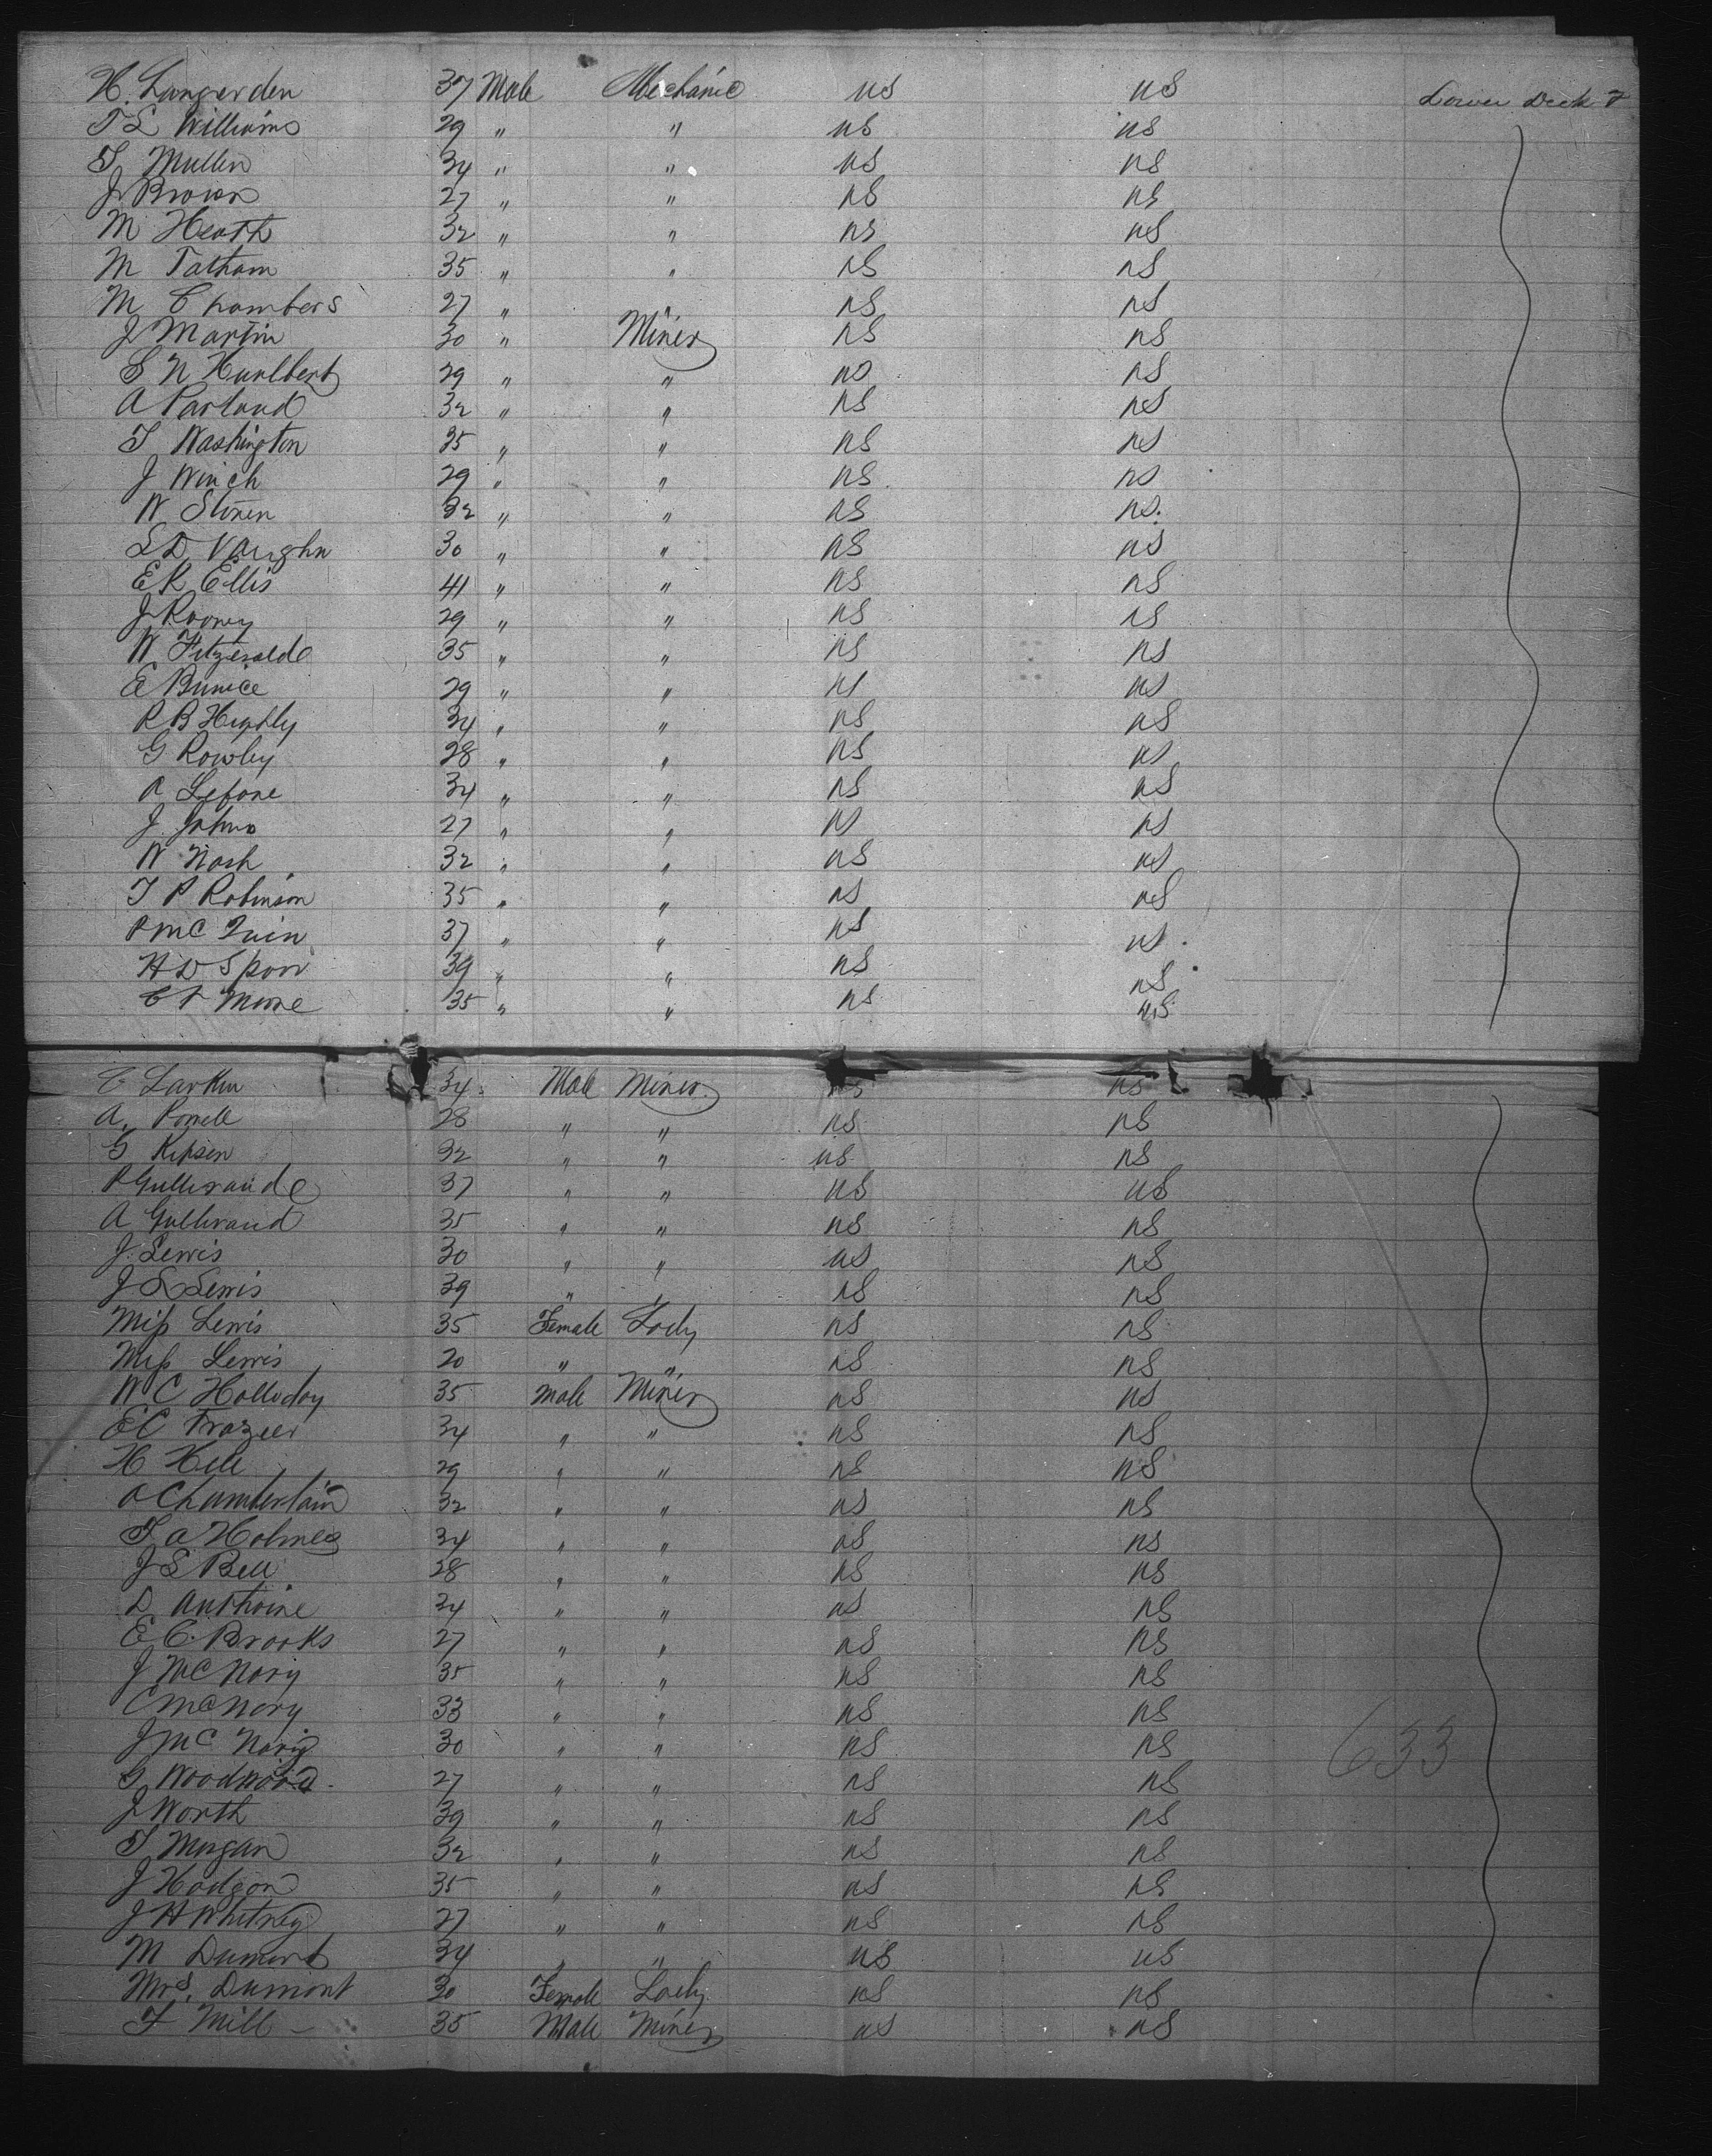 H. Langerden 37 Male Mechanic US US Lower Deck F
T L Williams 29 " " US US
T Mullen 34 " " US US
J Brown 27 " " US US
M Heath 32 " " US US
M Tatham 35 " " US US
M Chambers 27 " " US US
J Martin 30 " Miner US US
S N Hurlbert 29 " " US US
A Parland 32 " " US US
T Washington 35 " " US US
J Winch 29 " " US US
W Stoner 32 " " US US
S D Vaughn 30 " " US US
E R Ellis 41 " " US US
J Rooney 29 " " US US
W Fitzgerald 35 " " US US
E Bunice 29 " " US US
R B Highly 34 " " US US
G Rowley 28 " " US US
A Lefone 34 " " US US
J Johns 27 " " US US
W Nash 32 " " US US
T P Robinson 35 " " US US
P McQuin 37 " " US US
H D Sporr 39 " " US US
C F Moore 35 " " US US
C Larkin 34 Male Miner US US
A. Powell 28 " " US US
G Kipsen 32 " " US US
P Gulliraude 37 " " US US
A Gulliraud 35 " " US US
J. Lewis 30 " " US US
J L Lewis 39 " " US US
Miss Lewis 35 Female Lady US US
Miss Lewis 20 " " US US
W C Holliday 35 Male Miner US US
E C Frazier 34 " " US US
H Hill 29 " " US US
A Chamberlain 32 " " US US
T A Holmes 34 " " US US
J S Bell 28 " " US US
D Anthoine 34 " " US US
E C. Brooks 27 " " US US
J McNory 35 " " US US
C McNory 33 " " US US
J McNory 30 " " US US
G Woodword 27 " " US US
J Worth 39 " " US US
T Morgan 32 " " US US
J Hodgon 35 " " US US
J H Whitney 27 " " US US
M Dumont 34 " " US US
Mrs. Dumont 30 Female Lady US US
F Mill 35 Male Miner US US
633